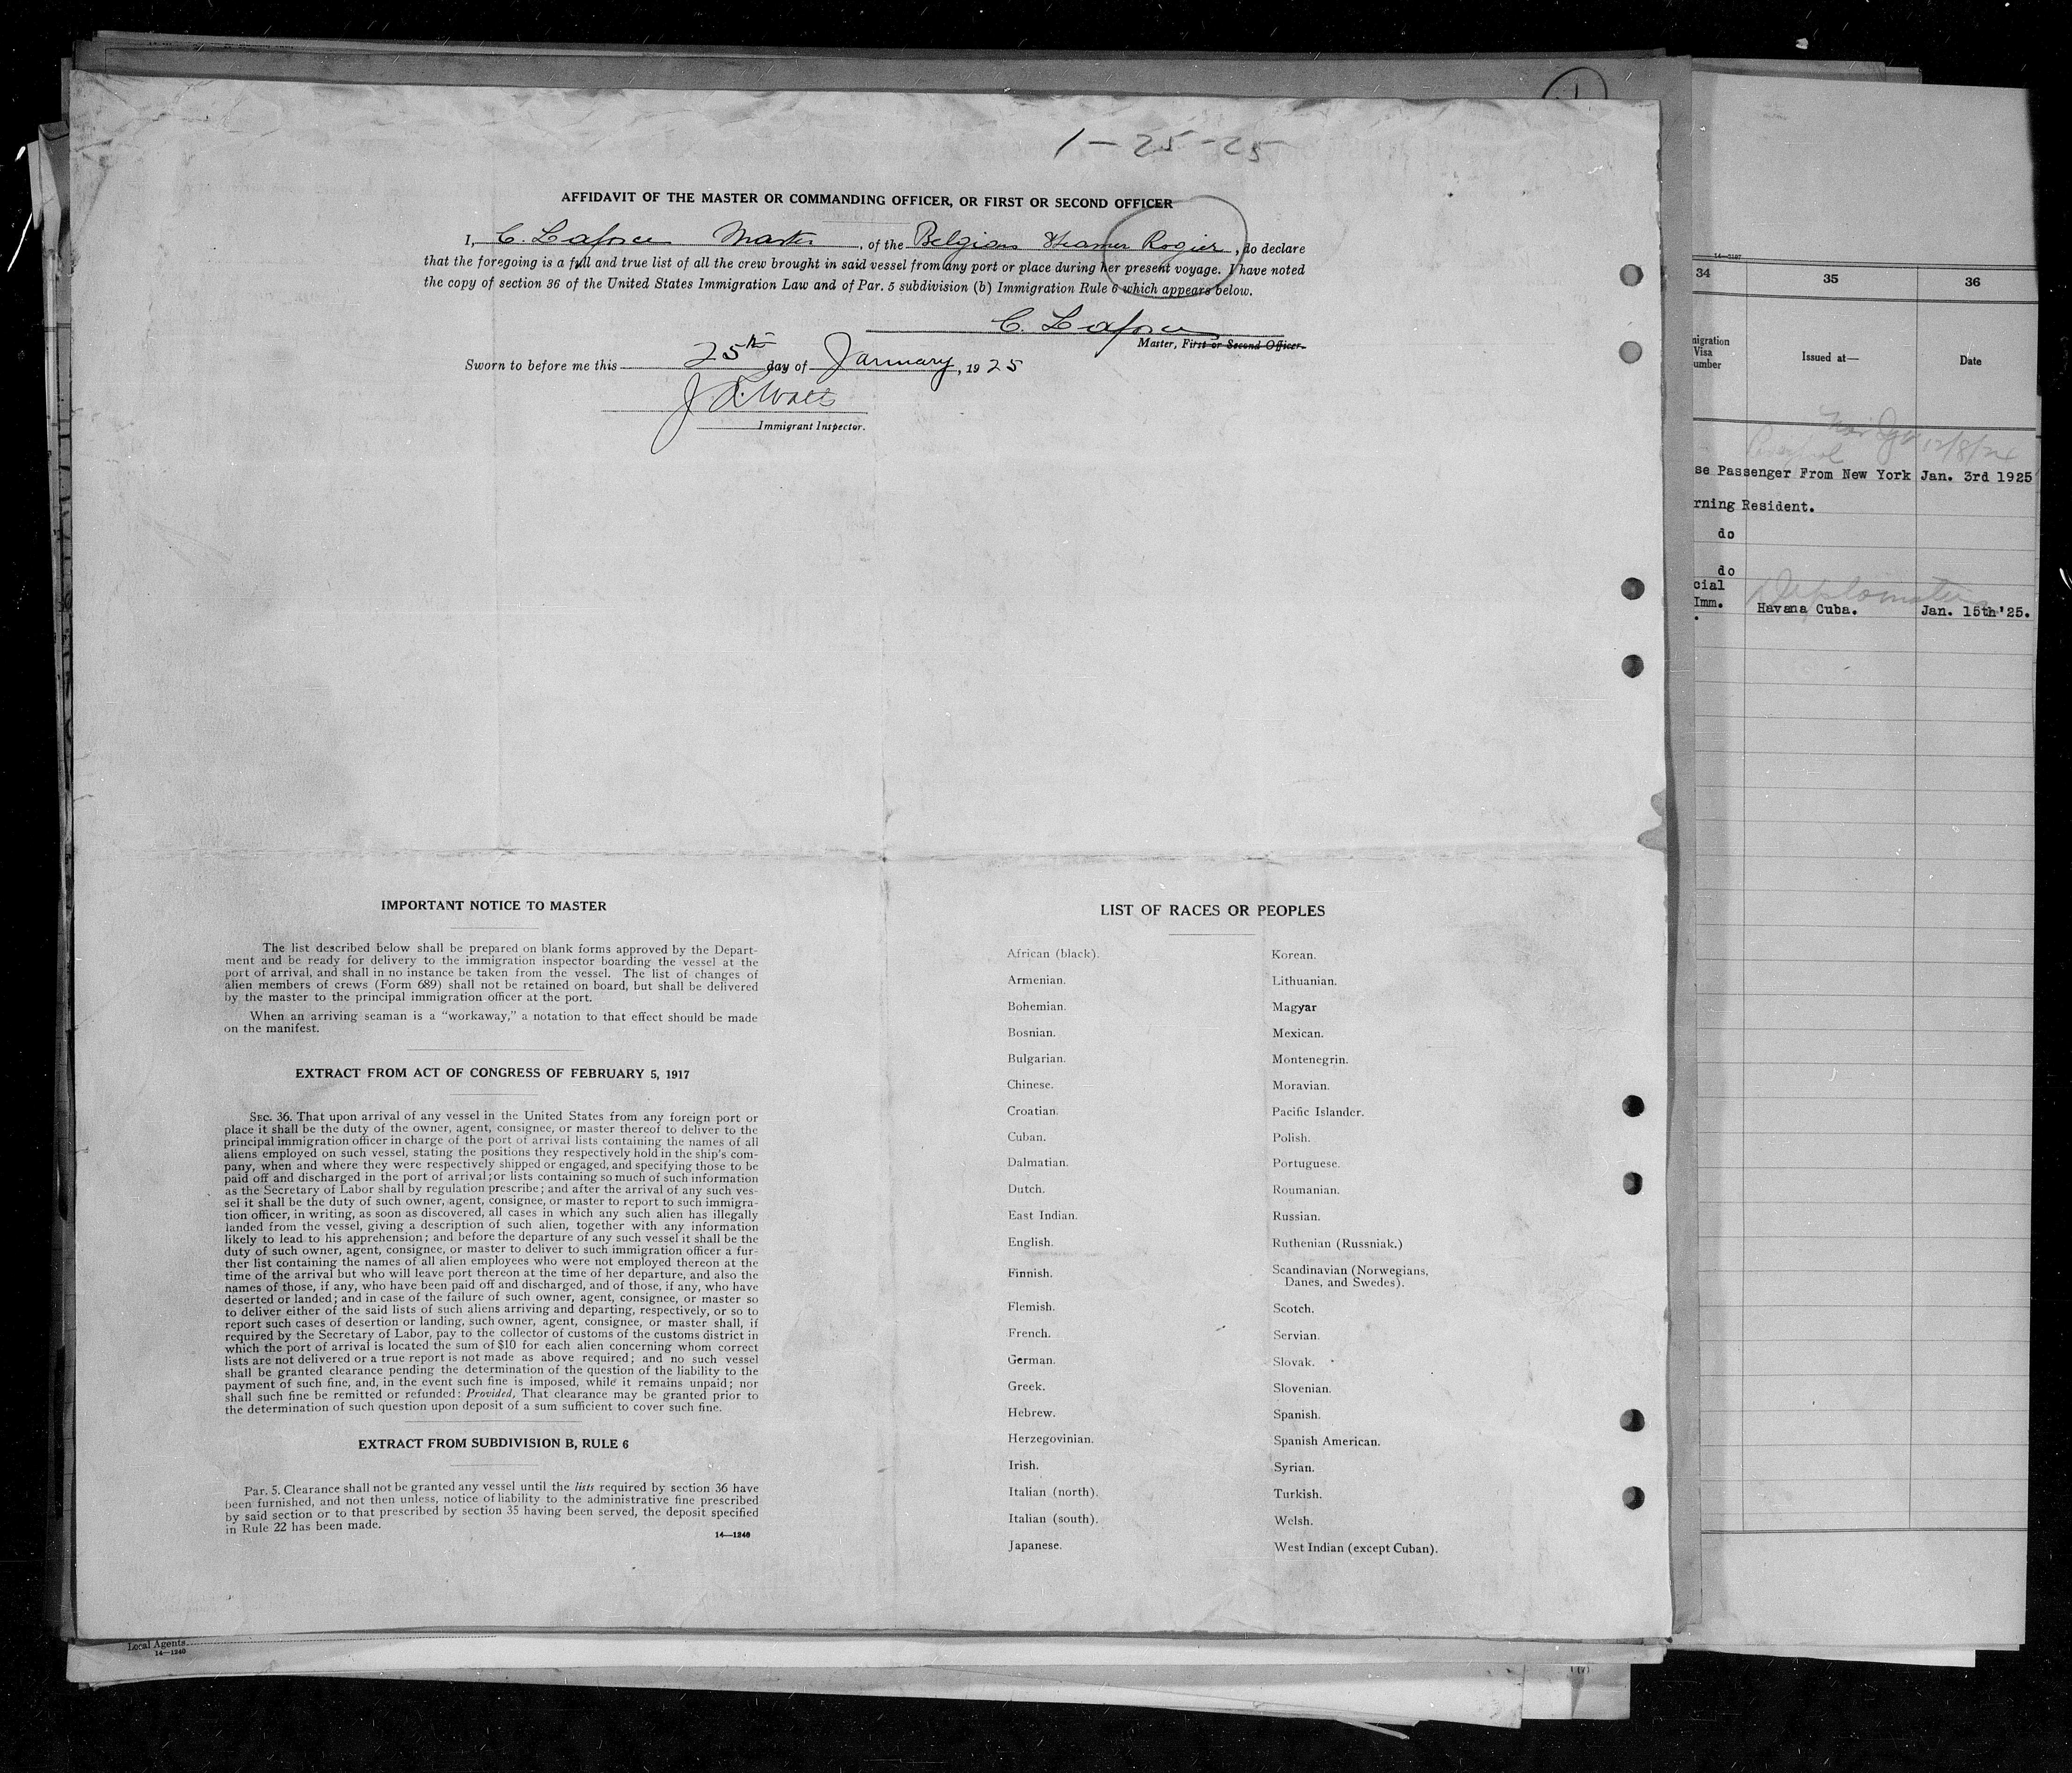 1
1-25-25
AFFIDAVIT OF THE MASTER OR COMMANDING OFFICER, OR FIRST OR SECOND OFFICER
I, C. Master, of the Belgian Steamer Rogier, do declare
that the foregoing is a full and true list of all the crew brought in said vessel from any port or place during her present voyage. I have noted
the copy of section 36 of the United States Immigration Law and of Par. 5 subdivision (b) Immigration Rule 6 which appears below.
C.
Master, First or Second Officer.
Sworn to before me this 25th day of January, 1925
Immigrant Inspector.
IMPORTANT NOTICE TO MASTER
The list described below shall be prepared on blank forms approved by the Depart-
ment and be ready for delivery to the immigration inspector boarding the vessel at the
port of arrival, and shall in no instance be taken from the vessel. The list of changes of
alien members of crews (Form 689) shall not be retained on board, but shall be delivered
by the master to the principal immigration officer at the port.
When an arriving seaman is a "workaway," a notation to that effect should be made
on the manifest.
EXTRACT FROM ACT OF CONGRESS OF FEBRUARY 5, 1917
SEC. 36. That upon arrival of any vessel in the United States from any foreign port or
place it shall be the duty of the owner, agent, consignee, or master thereof to deliver to the
principal immigration officer in charge of the port of arrival lists containing the names of all
aliens employed on such vessel, stating the positions they respectively hold in the ship's com-
pany, when and where they were respectively shipped or engaged, and specifying those to be
paid off and discharged in the port of arrival; or lists containing so much of such information
as the Secretary of Labor shall by regulation prescribe; and after the arrival of any such ves-
sel it shall be the duty of such owner, agent, consignee, or master to report to such immigra-
tion officer, in writing, as soon as discovered, all cases in which any such alien has illegally
landed from the vessel, giving a description of such alien, together with any information
likely to lead to his apprehension; and before the departure of any such vessel it shall be the
duty of such owner, agent, consignee, or master to deliver to such immigration officer a fur-
ther list containing the names of all alien employees who were not employed thereon at the
time of the arrival but who will leave port thereon at the time of her departure, and also the
names of those, if any, who have been paid off and discharged, and of those, if any, who have
deserted or landed; and in case of the failure of such owner, agent, consignee, or master so
to deliver either of the said lists of such aliens arriving and departing, respectively, or so to
report such cases of desertion or landing, such owner, agent, consignee, or master shall, if
required by the Secretary of Labor, pay to the collector of customs of the customs district in
which the port of arrival is located the sum of $10 for each alien concerning whom correct
lists are not delivered or a true report is not made as above required; and no such vessel
shall be granted clearance pending the determination of the question of the liability to the
payment of such fine, and, in the event such fine is imposed, while it remains unpaid; nor
shall such fine be remitted or refunded: Provided, That clearance may be granted prior to
the determination of such question upon deposit of a sum sufficient to cover such fine.
EXTRACT FROM SUBDIVISION B, RULE 6
Par. 5. Clearance shall not be granted any vessel until the lists required by section 36 have
been furnished, and not then unless, notice of liability to the administrative fine prescribed
by said section or to that prescribed by section 35 having been served, the deposit specified
in Rule 22 has been made.
14—1240
LIST OF RACES OR PEOPLES
African (black).
Armenian.
Bohemian.
Bosnian.
Bulgarian.
Chinese.
Croatian.
Cuban.
Dalmatian.
Dutch.
East Indian.
English.
Finnish.
Flemish.
French.
German.
Greek.
Hebrew.
Herzegovinian.
Irish.
Italian (north).
Italian (south).
Japanese.
Korean.
Lithuanian.
Magyar
Mexican.
Montenegrin.
Moravian.
Pacific Islander.
Polish.
Portuguese.
Roumanian.
Russian.
Ruthenian (Russniak.)
Scandinavian (Norwegians,
Danes, and Swedes).
Scotch.
Servian.
Slovak.
Slovenian.
Spanish.
Spanish American.
Syrian.
Turkish.
Welsh.
West Indian (except Cuban).
Local Agents
14—1240
34 35 36
migration
Visa
umber
Issued at—
Date
12/8/24
se Passenger From New York Jan. 3rd 1925
rning Resident.
do
do
cial
Imm. Havana Cuba. Jan. 15th '25.